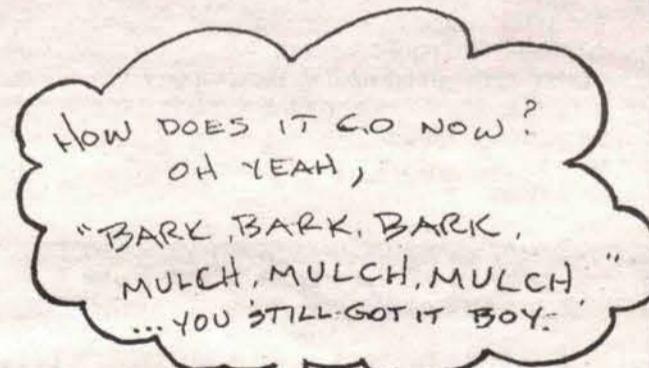 HOW DOES IT GO NOW?
OH YEAH,
"BARK, BARK, BARK,
MULCH, MULCH, MULCH"
... YOU STILL GOT IT BOY.